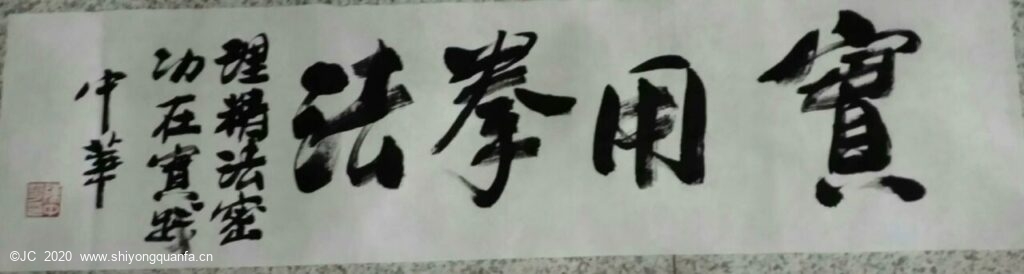 實用拳法
理精法密
功在實踐
中華
©JC 2020 www.shiyongquanfa.cn